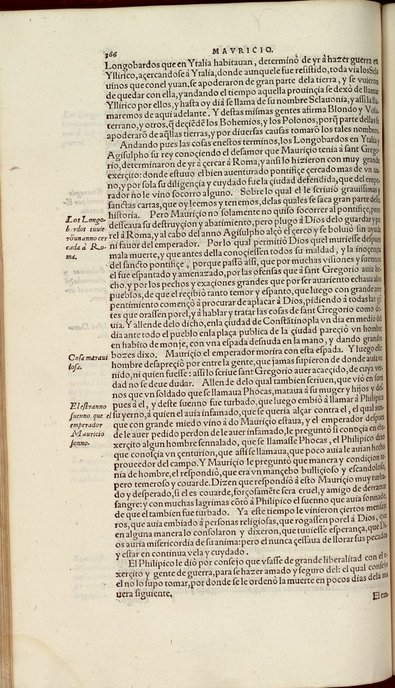 366
MAVRICIO.
Longobardos que en Ytalia habitauan, determinò de yr à hazer guerra en
Yllirico, acercandose à Ytalia, donde aunque fue resistido, toda via los
uinos que conel yuan, se apoderaron de gran parte dela tierra, y se vinieron
de quedar con ella, y andando el tiempo aquella prouinçia se dexò de llamar
Yllirico por ellos, y hasta oy dia se llama de su nombre Sclauonia, y assi la lla-
maremos de aqui adelante. Y destas mismas gentes afirma Blondo y Vola-
terrano, y otros, q̃ deçiẽdẽ los Bohemios, y los Polonos, porq̃ parte dellas se
apoderarõ de aq̃llas tierras, y por diuersas causas tomarõ los tales nombres.
Andando pues las cosas en estos terminos, los Longobardos en Ytalia y
Agisulpho su rey conoçiendo el desamor que Mauriçio tenia à sant Grego-
rio, determinaron de yr à çercar à Roma, y ansi lo hizieron con muy grande
exerçito: donde estuuo el bien auenturado pontifiçe çercado mas de vn an-
ño, y por sola su diligençia y cuydado fue la çiudad defendida, que del empe-
rador no le vino socorro alguno. Sobre lo qual el le scriuiò grauissimas y
sanctas cartas, que oy leemos y tenemos, delas quales se saca gran parte desta
historia. Pero Mauriçio no solamente no quiso socorrer al pontifiçe, pero
desseaua su destruyçion y abatimiento, pero plugo à Dios de lo guardar y que-
rer à Roma, y al cabo del anno Agisulpho alçò el çerco y se boluiò sin ayuda
ni fauor del emperador. Por lo qual permitiò Dios quel muriesse despues
mala muerte, y que antes della conoçiessen todos su maldad, y la innoçençia
del sancto pontifiçe, porque passò assi, que por muchas visiones y suennos
el fue espantado y amenazado, por las ofensas que à sant Gregorio auia he-
cho, y por los pechos y exaçiones grandes que por ser auariento echaua alos
pueblos, de que el reçibiò tanto temor y espanto, que luego con grande arre-
pentimiento començò à procurar de aplacar à Dios, pidiendo à todas las gẽ-
tes que orassen por el, y à hablar y tratar las cosas de sant Gregorio como di-
uia. Y allende delo dicho, en la çiudad de Constãtinopla vn dia en medio del
dia ante todo el pueblo en la plaça publica de la çiudad pareçiò vn hombre
en habito de monje, con vna espada desnuda en la mano, y dando grandes
bozes dixo. Mauriçio el emperador morira con esta espada. Y luego el
hombre desapareçiò por entre la gente, que jamas supieron de donde auia ve-
nido, ni quien fuesse: assi lo scriue sant Gregorio auer acaeçido, de cuya ver-
dad no se deue dudar. Allende delo qual tambien scriuen, que viò en sue-
nos que vn soldado que se llamaua Phocas, mataua à su muger y hijos y des-
pues à el, y deste suenno fue turbado, que luego embiò à llamar à Philipico
su yerno, à quien el auia infamado, que se queria alçar contra el, el qual aun-
que con grande miedo vino à do Mauriçio estaua, y el emperador despues
de le auer pedido perdon de le auer infamado, le preguntò si conoçia en el e-
xerçito algun hombre sennalado, que se llamasse Phocas, el Philipico dixo
que conosçia vn çenturion, que assi se llamaua, que poco auia le auian hecho
proueedor del campo. Y Mauriçio le preguntò que manera y condiçion te-
nia de hombre, el respondiò, que era vn mançebo bulliçioso y escandaloso,
pero temeroso y couarde. Dizen que respondiò à esto Mauriçio muy turba-
do y desperado, si el es couarde, forçosamẽte sera cruel, y amigo de derramar
sangre: y con muchas lagrimas cõtò à Philipico el suenno que auia sonnado,
de que el tambien fue turbado. Ya este tiempo le vinieron çiertos mensage-
ros, que auia embiado à personas religiosas, que rogassen por el à Dios, que
en alguna manera lo consolaron y dixeron, que tuuiesse esperança, que Di-
os auria misericordia de su anima: pero el nunca çessaua de llorar sus pecados
y estar en continua vela y cuydado.
El Philipico le diò por consejo que vsasse de grande liberalitad con el e-
xerçito y gente de guerra, para se hazer amado y seguro del: el qual consejo
el no lo supo tomar, por donde se le ordenò la muerte en pocos dias dela ma-
nera siguiente,
El en-
Los Longo-
bardos tuuie
ron vn anno çer
cada à Ro-
ma.
Cosa maraui
llosa.
El estranno
suenno que el
emperador
Mauricio
sonno.